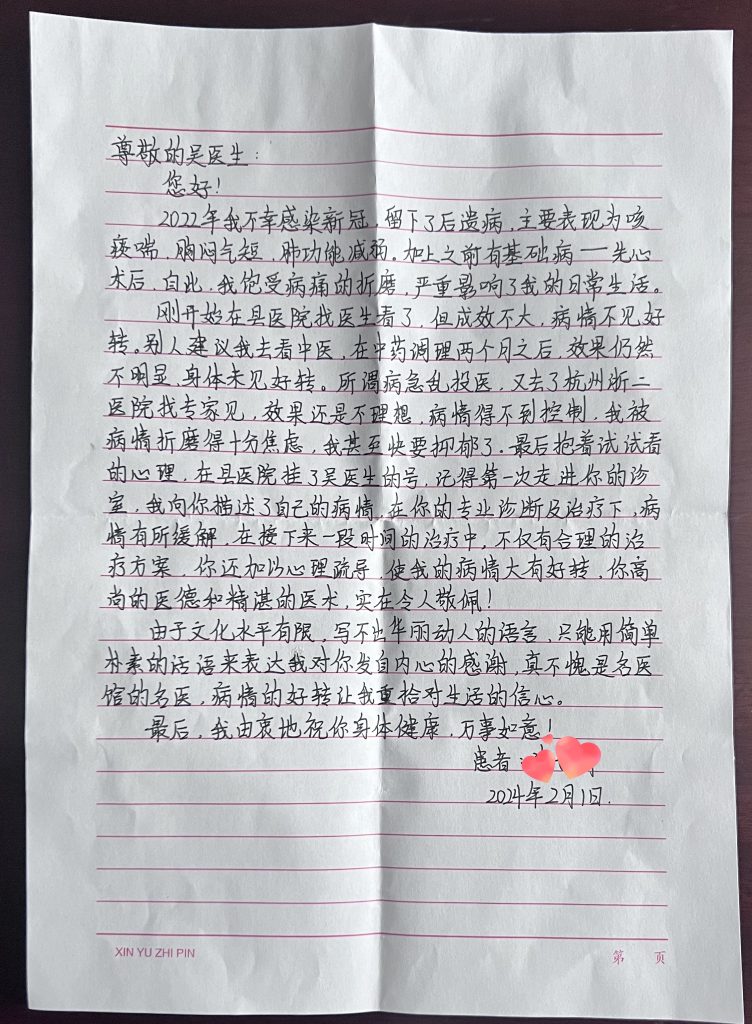 尊敬的吴医生：
您好！
2022年我不幸感染新冠，留下了后遗病，主要表现为咳
痰喘，胸闷气短，肺功能减弱。加上之前有基础病——先心
术后，自此，我饱受病痛的折磨，严重影响了我的日常生活。
刚开始在县医院找医生看了，但成效不大，病情不见好
转。别人建议我去看中医，在中药调理两个月之后，效果仍然
不明显，身体未见好转。所谓病急乱投医，又去了杭州浙二
医院找专家见，效果还是不理想，病情得不到控制，我被
病情折磨得十分焦虑，我甚至快要抑郁了。最后抱着试试看
的心理，在县医院挂了吴医生的号，记得第一次走进你的诊
室，我向你描述了自己的病情，在你的专业诊断及治疗下，病
情有所缓解，在接下来一段时间的治疗中，不仅有合理的治
疗方案，你还加以心理疏导，使我的病情大有好转，你高
尚的医德和精湛的医术，实在令人敬佩！
由于文化水平有限，写不出华丽动人的语言，只能用简单
朴素的话语来表达我对你发自内心的感谢，真不愧是名医
馆的名医，病情的好转让我重拾对生活的信心。
最后，我由衷地祝你身体健康，万事如意！
患者：
2024年2月1日.
XIN YU ZHI PIN
第 页